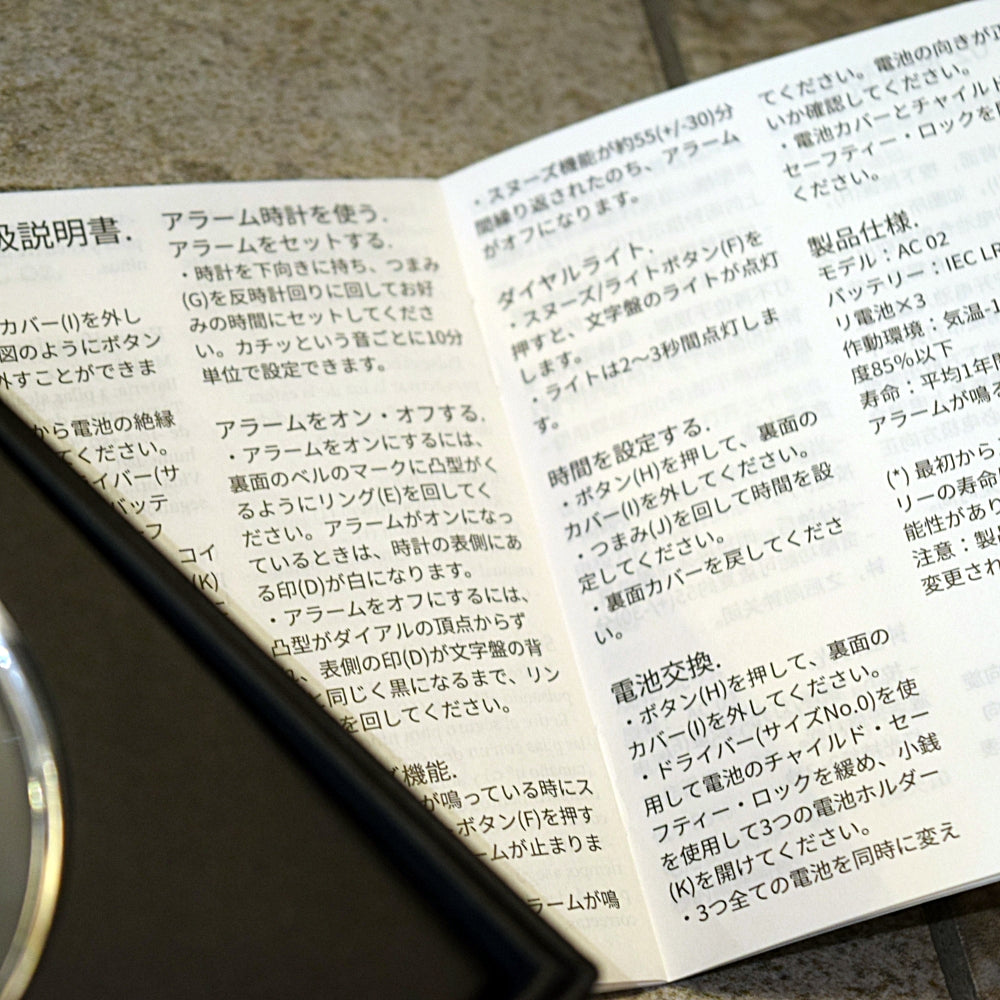 扱説明書.
カバー(I)を外し
図のようにボタン
外すことができま
から電池の絶縁
てください。
イバー(サ
バッテ
ーフ
コイ
(K)
アラーム時計を使う.
アラームをセットする.
・時計を下向きに持ち、つまみ
(G)を反時計回りに回してお好
みの時間にセットしてくださ
い。カチッという音ごとに10分
単位で設定できます。
アラームをオン・オフする.
・アラームをオンにするには、
裏面のベルのマークに凸型がく
るようにリング(E)を回してく
ださい。アラームがオンになっ
ているときは、時計の表側にあ
る印(D)が白になります。
・アラームをオフにするには、
凸型がダイアルの頂点からず
、表側の印(D)が文字盤の背
と同じく黒になるまで、リン
を回してください。
機能.
が鳴っている時にス
ボタン(F)を押す
ームが止まりま
ラームが鳴
・スヌーズ機能が約55(+/-30)分
間繰り返されたのち、アラーム
がオフになります。
ダイヤルライト.
・スヌーズ/ライトボタン(F)を
押すと、文字盤のライトが点灯
します。
・ライトは2〜3秒間点灯しま
す。
時間を設定する.
・ボタン(H)を押して、裏面の
カバー(I)を外してください。
・つまみ(J)を回して時間を設
定してください。
・裏面カバーを戻してくださ
い。
電池交換.
・ボタン(H)を押して、裏面の
カバー(I)を外してください。
・ドライバー(サイズNo.0)を使
用して電池のチャイルド・セー
フティー・ロックを緩め、小銭
を使用して3つの電池ホルダー
(K)を開けてください。
・3つ全ての電池を同時に変え
てください。電池の向きが正
いか確認してください。
・電池カバーとチャイルド
セーフティー・ロックを
ください。
製品仕様.
モデル：AC 02
バッテリー：IEC LR
リ電池×3
作動環境：気温-1
度85%以下
寿命：平均1年
アラームが鳴る
(*) 最初から
リーの寿命
能性があり
注意：製品
変更され